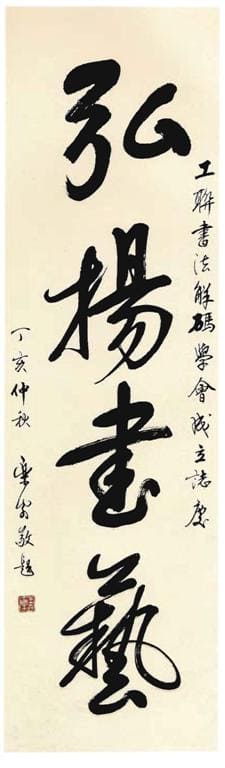 工聯書法解碼學會成立誌慶
弘揚書藝
丁亥仲秋
敬題